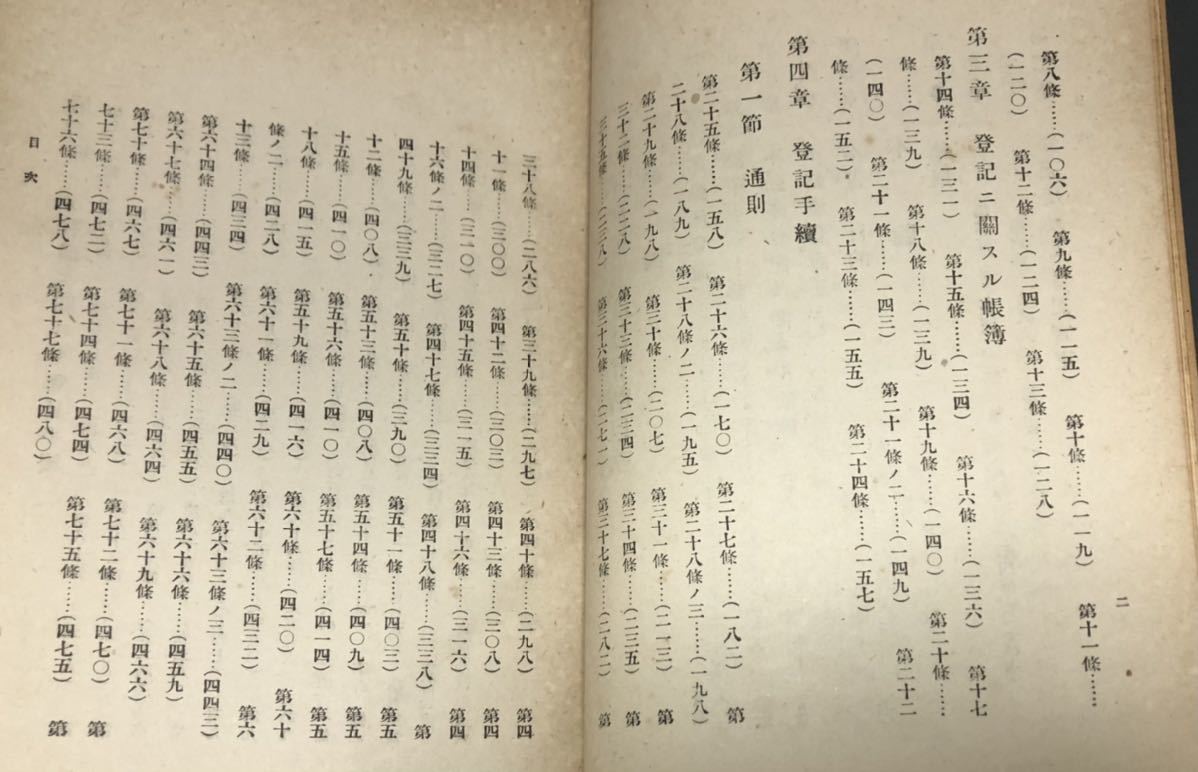 二
第八條……(一〇六) 第九條……(一一五) 第十條……(一一九) 第十一條……
(一二〇) 第十二條……(一二四) 第十三條……(一二八)
第三章 登記ニ關スル帳簿
第十四條……(一三一) 第十五條……(一三四) 第十六條……(一三六) 第十七
條……(一三九) 第十八條……(一三九) 第十九條……(一四〇) 第二十條……
(一四〇) 第二十一條……(一四三) 第二十一條ノ二……(一四九) 第二十二
條……(一五二) 第二十三條……(一五五) 第二十四條……(一五七)
第四章 登記手續
第一節 通則
第二十五條……(一五八) 第二十六條……(一七〇) 第二十七條……(一八二) 第
二十八條……(一八九) 第二十八條ノ二……(一九五) 第二十八條ノ三……(一九八)
第二十九條……(一九八) 第三十條……(二〇七) 第三十一條……(二一三) 第
三十二條……(二二八) 第三十三條……(二三四) 第三十四條……(二三五) 第
三十五條……(二三八) 第三十六條……(二七一) 第三十七條……(二八二) 第
三十八條……(二八六) 第三十九條……(二九七) 第四十條……(二九八) 第四
十一條……(三〇〇) 第四十二條……(三〇三) 第四十三條……(三〇八) 第四
十四條……(三一〇) 第四十五條……(三一五) 第四十六條……(三一六) 第四
十六條ノ二……(三二七) 第四十七條……(三三四) 第四十八條……(三三八) 第
四十九條……(三三九) 第五十條……(三九〇) 第五十一條……(四〇三) 第五
十二條……(四〇八) 第五十三條……(四〇八) 第五十四條……(四〇九) 第五
十五條……(四一〇) 第五十六條……(四一〇) 第五十七條……(四一四) 第五
十八條……(四一五) 第五十九條……(四一六) 第六十條……(四二〇) 第六十
條ノ二……(四二八) 第六十一條……(四二九) 第六十二條……(四三二) 第六
十三條……(四三四) 第六十三條ノ二……(四四〇) 第六十三條ノ三……(四四三)
第六十四條……(四四三) 第六十五條……(四五五) 第六十六條……(四五九)
第六十七條……(四六一) 第六十八條……(四六四) 第六十九條……(四六六)
第七十條……(四六七) 第七十一條……(四六八) 第七十二條……(四七〇) 第
七十三條……(四七二) 第七十四條……(四七四) 第七十五條……(四七五) 第
七十六條……(四七八) 第七十七條……(四八〇)
目次